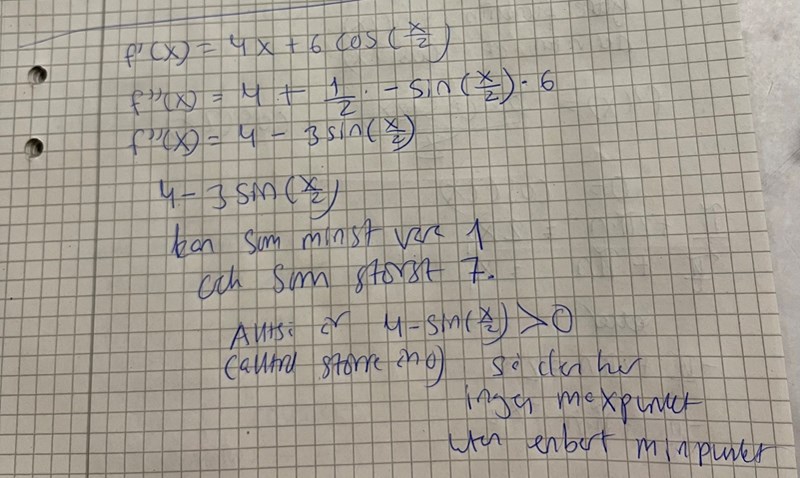 f'(x) = 4x + 6 cos(x/2)
f''(x) = 4 + 1/2 · - sin(x/2) · 6
f''(x) = 4 - 3 sin(x/2)
4 - 3 sin(x/2)
kan som minst vara 1
och som störst 7.
Alltså är 4 - sin(x/2) > 0
(alltid större än 0) så den har
ingen maxpunkt
utan enbart minpunkt